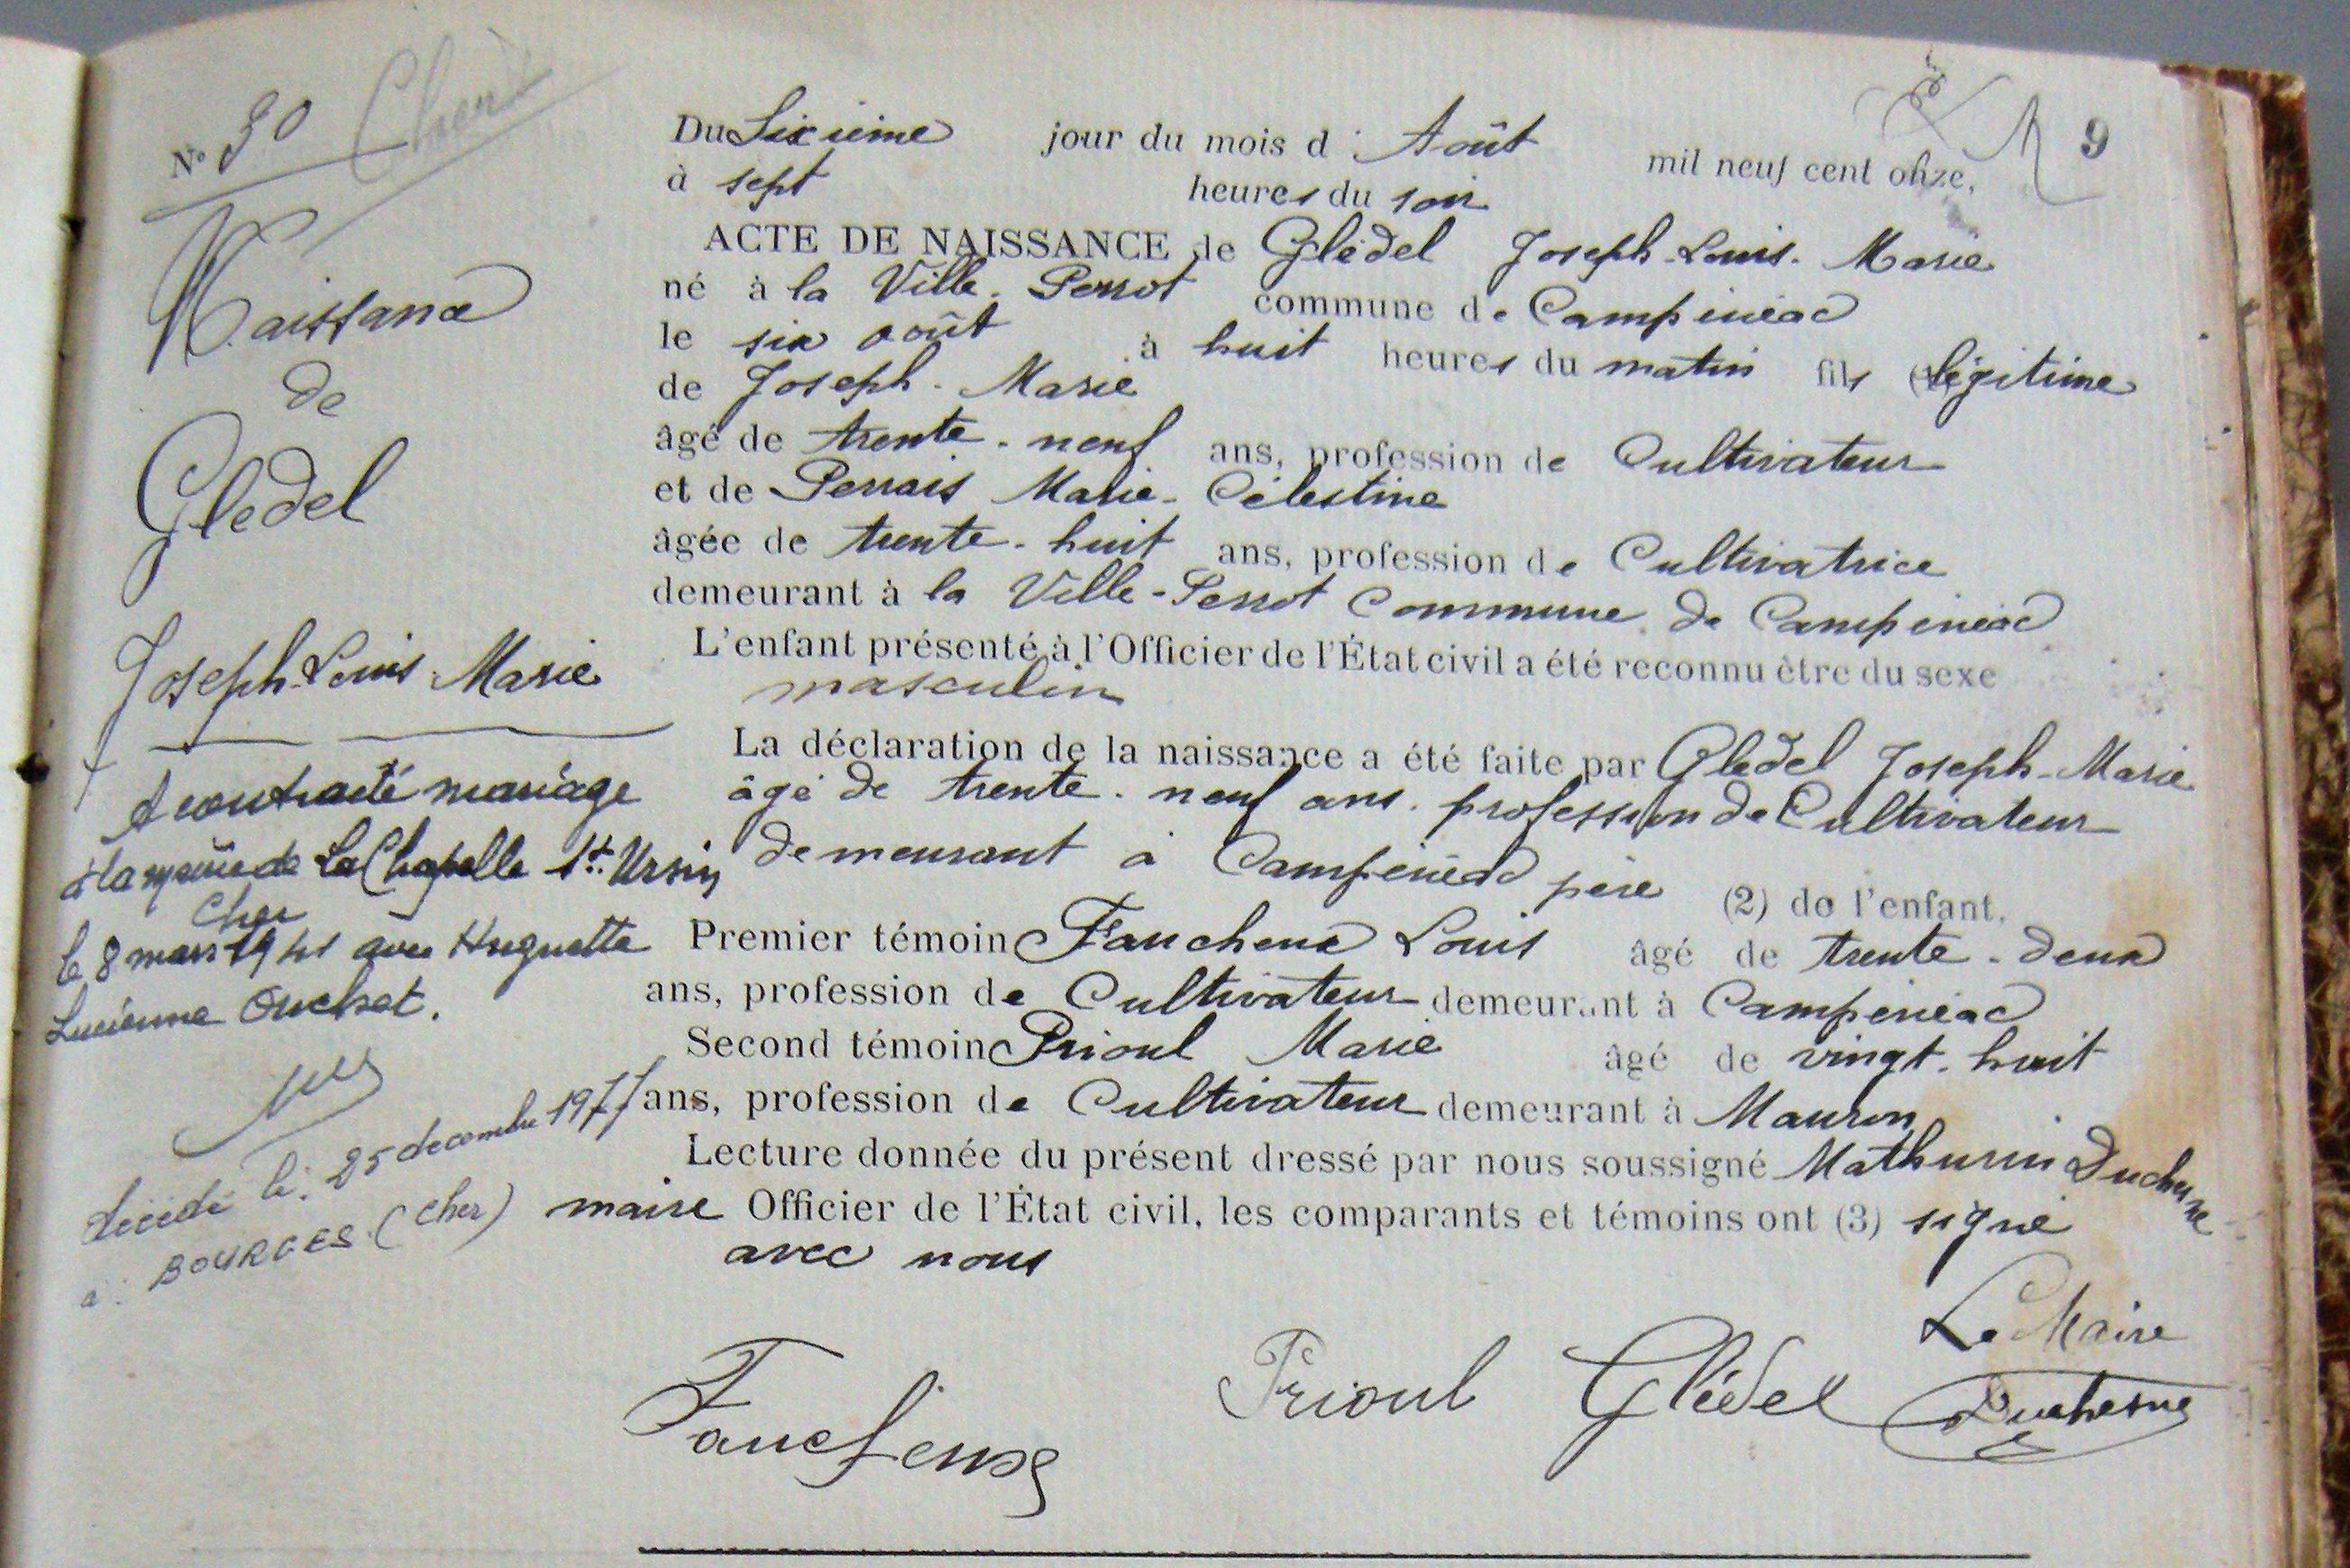 N° 30
Cher
9
Naissance
de
Glédel
Joseph-Louis-Marie
A contracté mariage
à la mairie de La Chapelle St. Ursin
Cher
le 8 mars 1941 avec Huguette
Lucienne Ouchet.
décédé le 25 décembre 1977
à BOURGES (Cher)
Du Sixième jour du mois d'Août mil neuf cent onze,
à sept heures du soir
ACTE DE NAISSANCE de Glédel Joseph-Louis-Marie
né à la Ville-Perrot commune de Campénéac
le six août à huit heures du matin fils légitime
de Joseph-Marie
âgé de trente-neuf ans, profession de Cultivateur
et de Perrais Marie-Célestine
âgée de trente-huit ans, profession de Cultivatrice
demeurant à la Ville-Perrot commune de Campénéac
L'enfant présenté à l'Officier de l'État civil a été reconnu être du sexe
masculin
La déclaration de la naissance a été faite par Glédel Joseph-Marie
âgé de trente-neuf ans profession de Cultivateur
demeurant à Campénéac père (2) de l'enfant.
Premier témoin Faucheux Louis âgé de trente-deux
ans, profession de Cultivateur demeurant à Campénéac
Second témoin Prioul Marie âgé de vingt-huit
ans, profession de Cultivateur demeurant à Mauron
Lecture donnée du présent dressé par nous soussigné Mathurin Duchesne
maire Officier de l'État civil, les comparants et témoins ont (3) signé
avec nous
Le Maire
Faucheux Prioul Glédel Duchesne